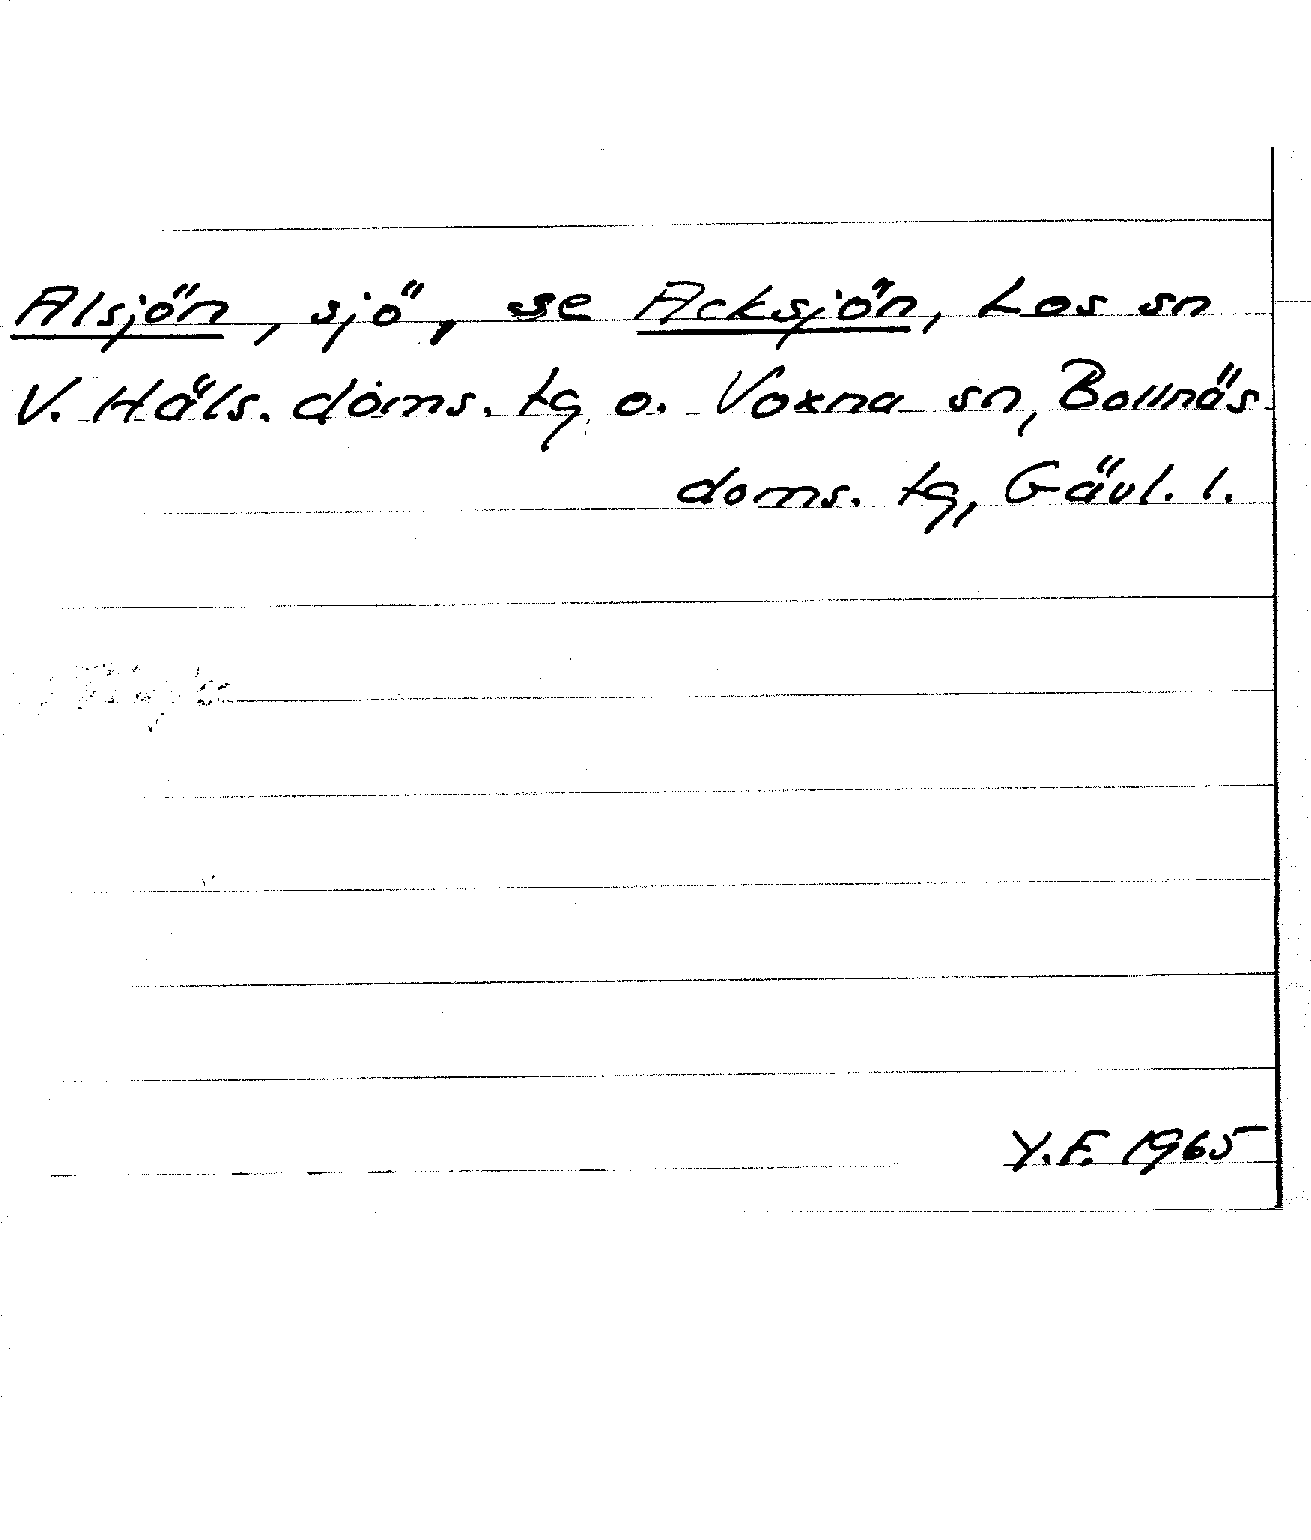 Alsjön, sjö, se Acksjön, Los sn
V. Häls. doms. tg o. Voxna sn, Bollnäs
doms. tg, Gävl. l.
Y.F. 1965